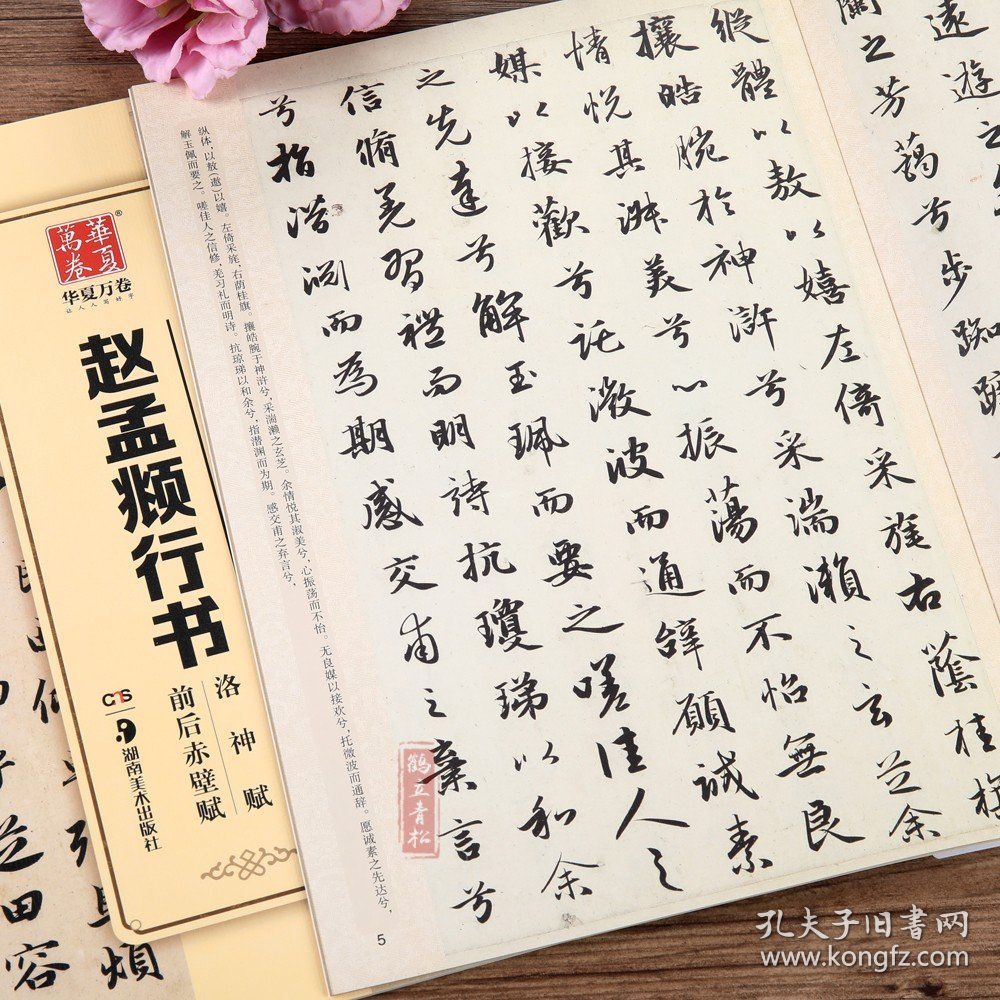 縱體以敖以嬉左倚采旄右蔭桂旗
攘皓腕於神滸兮采湍瀨之玄芝余
情悦其淋美兮心振蕩而不怡無良
媒以接歡兮託微波而通辭願誠素
之先達兮解玉珮而要之嗟佳人之
信脩羌習禮而明詩抗瓊珶以和余
兮指潛淵而為期感交甫之棄言兮
纵体，以敖(遨)以嬉。左倚采旄，右荫桂旗。攘皓腕于神浒兮，采湍濑之玄芝。余情悦其淑美兮，心振荡而不怡。无良媒以接欢兮，托微波而通辞。愿诚素之先达兮，
解玉佩而要之。嗟佳人之信修，羌习礼而明诗。抗琼珶以和余兮，指潜渊而为期。感交甫之弃言兮，
5
鶴立青松
遠遊之
蘭之芳藹兮步踟
華夏
萬卷
®
华夏万卷
让人人写好字
赵孟頫行书
洛神赋
前后赤壁赋
湖南美术出版社
田容
煩
孔夫子旧书网
www.kongfz.com